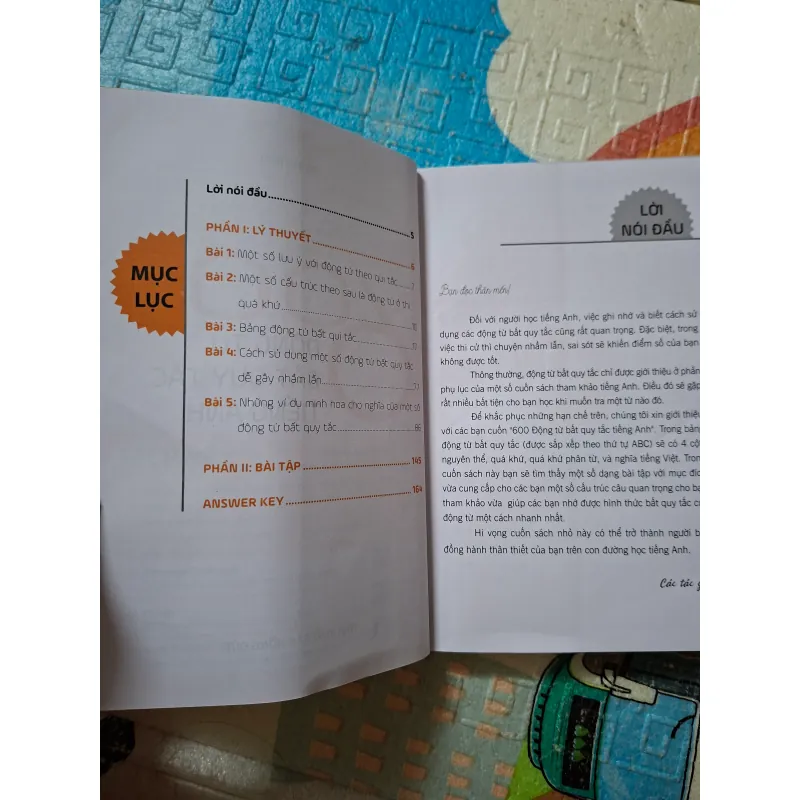 MỤC
LỤC
Lời nói đầu........................5
PHẦN I: LÝ THUYẾT........................6
Bài 1: Một số lưu ý với động từ theo qui tắc........7
Bài 2: Một số cấu trúc theo sau là động từ ở thì
quá khứ........................10
Bài 3: Bảng động từ bất qui tắc
Bài 4: Cách sử dụng một số động từ bất quy tắc
dễ gây nhầm lẫn
Bài 5: Những ví dụ minh hoạ cho nghĩa của một số
động từ bất quy tắc........................86
PHẦN II: BÀI TẬP........................145
ANSWER KEY........................164
LỜI
NÓI ĐẦU
Bạn đọc thân mến!
Đối với người học tiếng Anh, việc ghi nhớ và biết cách sử
dụng các động từ bất quy tắc cũng rất quan trọng. Đặc biệt, trong
việc thi cử thì chuyện nhầm lẫn, sai sót sẽ khiến điểm số của bạn
không được tốt.
Thông thường, động từ bất quy tắc chỉ được giới thiệu ở phần
phụ lục của một số cuốn sách tham khảo tiếng Anh. Điều đó sẽ gặp
rất nhiều bất tiện cho bạn học khi muốn tra một từ nào đó.
Để khắc phục những hạn chế trên, chúng tôi xin giới thiệu
với các bạn cuốn "600 Động từ bất quy tắc tiếng Anh". Trong bảng
động từ bất quy tắc (được sắp xếp theo thứ tự ABC) sẽ có 4 cột
nguyên thể, quá khứ, quá khứ phân từ, và nghĩa tiếng Việt. Tron
cuốn sách này bạn sẽ tìm thấy một số dạng bài tập với mục đíc
vừa cung cấp cho các bạn một số cấu trúc câu quan trọng cho bạ
tham khảo vừa giúp các bạn nhớ được hình thức bất quy tắc c
động từ một cách nhanh nhất.
Hi vọng cuốn sách nhỏ này có thể trở thành người b
đồng hành thân thiết của bạn trên con đường học tiếng Anh.
Các tác g